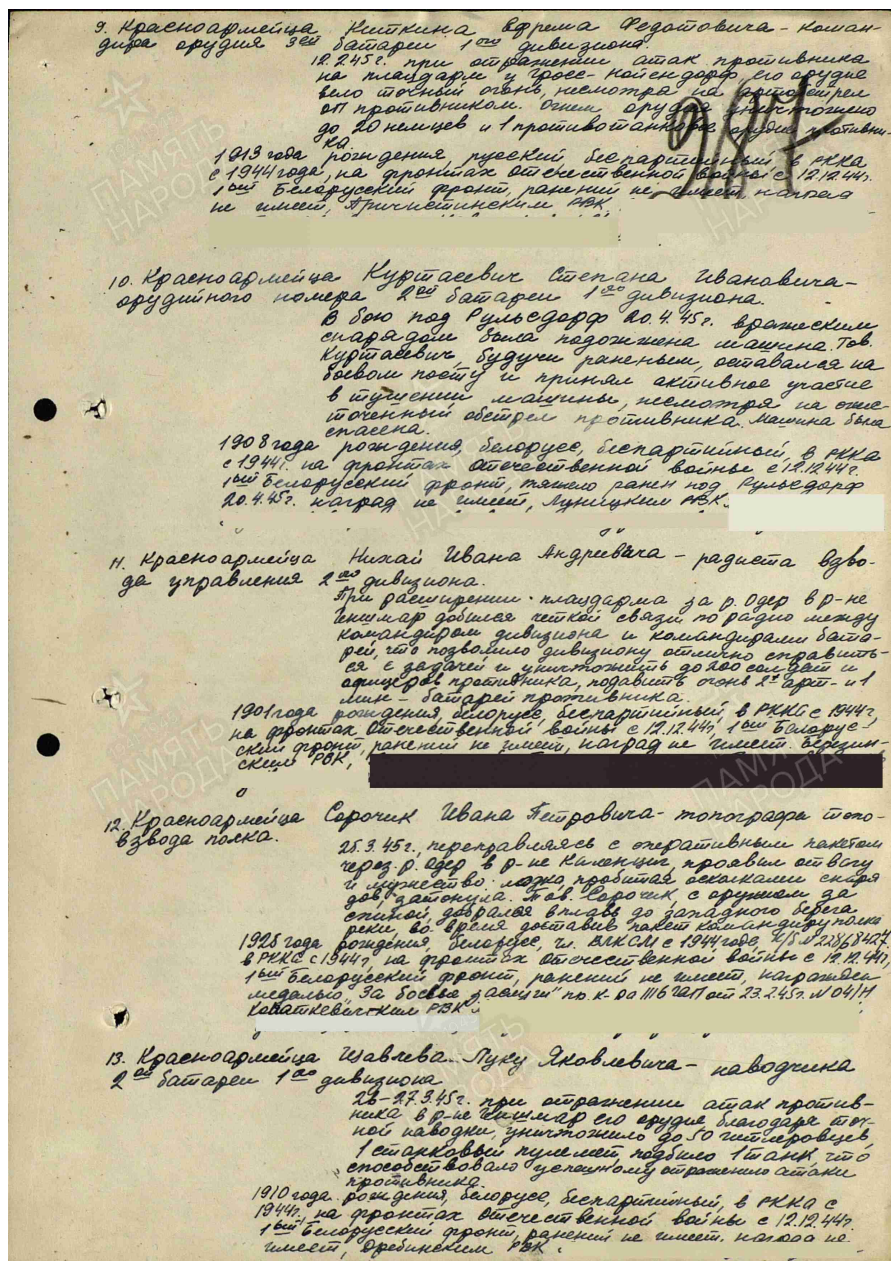 9. Красноармейца Киткина Ефрема Федотовича - коман-
дира орудия 3ей батареи 1ого дивизиона.
12.2.45г. при отражении атак противника
на плацдарм у Гросс-Нойендорф, его орудие
вело точный огонь, несмотря на артобстрел
ОП противником. Огнем орудия уничтожено
до 20 немцев и 1 противотанковое орудие противни-
ка.
287
1913 года рождения, русский, беспартийный, в РККА
с 1944 года, на фронтах Отечественной войны с 12.12.44г.
1ый Белорусский фронт, ранений не имеет, наград
не имеет, Пречистинским РВК
10. Красноармейца Куртасевич Степана Ивановича -
орудийного номера 2ой батареи 1ого дивизиона.
В бою под Рульсдорф 20.4.45г. вражеским
снарядом была подожжена машина. Тов.
Куртасевич, будучи раненым, оставался на
боевом посту и принял активное участие
в тушении машины, несмотря на ожес-
точенный обстрел противника. Машина была
спасена.
1908 года рождения, белорусс, беспартийный, в РККА
с 1944г. на фронтах Отечественной войны с 12.12.44г.
1ый Белорусский фронт, тяжело ранен под Рульсдорф
20.4.45г. наград не имеет, Луницким РВК.
11. Красноармейца Нихай Ивана Андреевича - радиста взво-
да управления 2ого дивизиона.
При расширении плацдарма за р. Одер в р-не
Геншмар добился четкой связи по радио между
командиром дивизиона и командирами бата-
рей, что позволило дивизиону отлично справить-
ся с задачей и уничтожить до 200 солдат и
офицеров противника, подавить огонь 2х арт- и 1
мин- батарей противника.
1901 года рождения, белорусс, беспартийный, в РККА с 1944г.,
на фронтах Отечественной войны с 12.12.44г, 1ый Белорус-
ский фронт, ранений не имеет, наград не имеет. Березин-
ским РВК,
12. Красноармейца Сорочик Ивана Петровича - топографа топо-
взвода полка.
25.3.45г., переправляясь с оперативным пакетом
через р. Одер в р-не Киленциг, проявил отвагу
и мужество. Лодка, пробитая осколками снаря
дов, затонула. Тов. Сорочик, с оружием за
спиной, добрался вплавь до западного берега
реки, во время доставив пакет командиру полка
1925 года рождения, белорусс, чл. ВЛКСМ с 1944 года, к/б № 22868427
в РККА с 1944г, на фронтах Отечественной войны с 12.12.44г,
1ый Белорусский фронт, ранений не имеет, награжден
медалью "За боевые заслуги" пр. к-ра 1116 ГАП от 23.2.45г. № 04/Н
РВК
13. Красноармейца Щавлева Луку Яковлевича - наводчика
2ой батареи 1ого дивизиона
26-27.3.45г. при отражении атак против-
ника в р-не Геншмар его орудие благодаря точ-
ной наводки, уничтожило до 50 гитлеровцев,
1 станковый пулемет, подбило 1 танк что
способствовало успешному отражению атаки
противника.
1910 года рождения, белорусс, беспартийный, в РККА с
1944г, на фронтах Отечественной войны с 12.12.44г.
1ый Белорусский фронт, ранений не имеет, наград не
имеет, Дрибинским РВК.